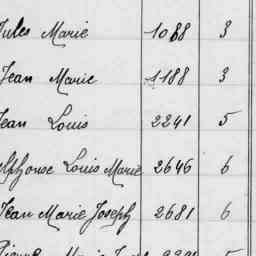 Jules Marie 1088 3
Jean Marie 1188 3
Jean Louis 2241 5
Alphonse Louis Marie 2646 6
Jean Marie Joseph 2681 6